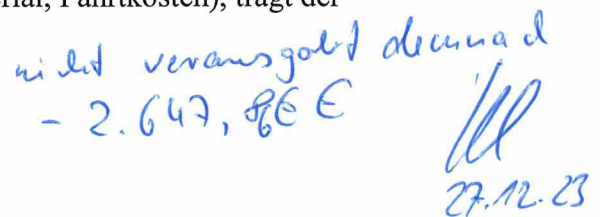 rial, Fahrtkosten), trägt der
nicht verausgabt demnach
- 2.647, €
27.12.23